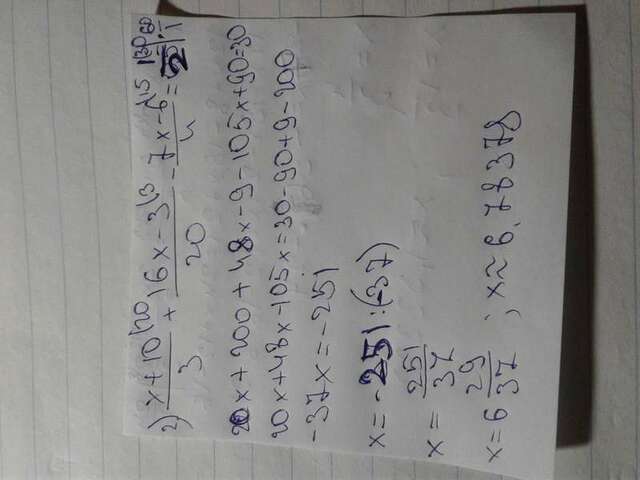 2) x+10/3 |20 + 16x-3/20 |3 - 7x-6/4 |15 = 1/2 |30 |· 60/1
20x+200+48x-9-105x+90=30
20x+48x-105x=30-90+9-200
-37x=-251
x=-251:(-37)
x=251/37
x=6 29/37 ; x≈6,78378